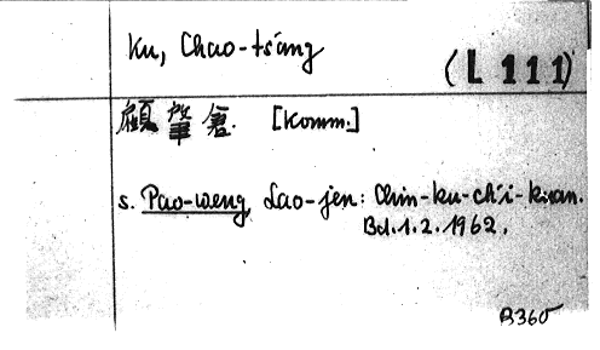 Ku, Chao-ts'ang
(L 111)
顧肇倉. [Komm.]
s. Pao-weng, Lao-jen: Chin-ku-ch'i-kuan.
Bd. 1.2. 1962.
B360